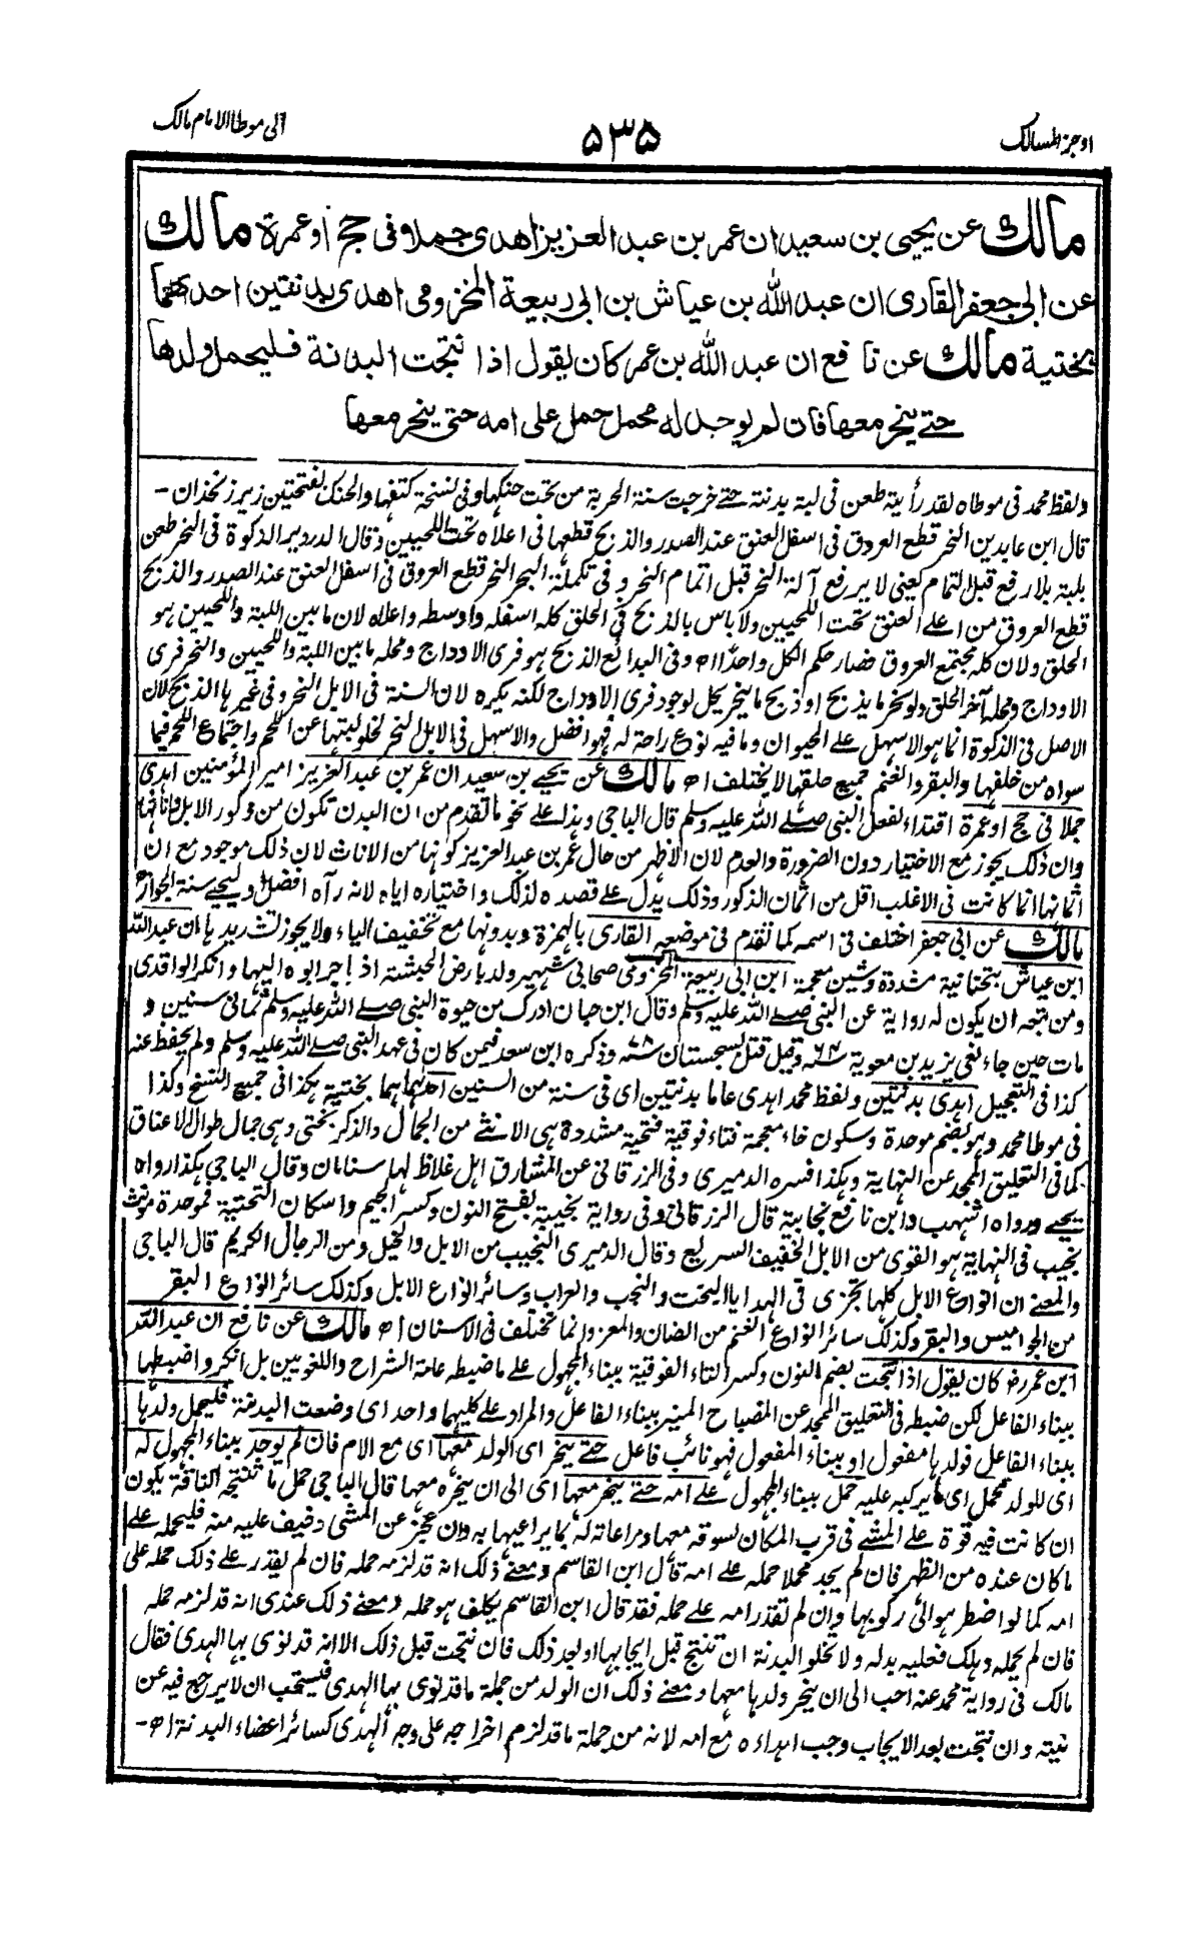 اوجز المسالك
۵۳۵
الى موطا الامام مالك
مالك عن يحيى بن سعيد ان عمر بن عبد العزيز اهدى جملا فى حج او عمرة مالك
عن ابى جعفر القارى ان عبد الله بن عياش بن ابى ربيعة المخزومى اهدى بدنتين احدٰهما
بختية مالك عن نافع ان عبد الله بن عمر كان يقول اذا نتجت البدنة فليحمل ولدها
حتے ينحر معها فان لم يوجد له محمل حمل على امه حتى ينحر معها
ولفظ محمد فى موطاه لقد رأيته طعن فى لبة بدنته حتے خرجت سنة الحربة من تحت حنكها وفى نسخة كتفها والحنك بفتحتين زير زنخدان -
قال ابن عابدين النحر قطع العروق فى اسفل العنق عند الصدر والذبح قطعها فى اعلاه تحت اللحيين وقال الدردير الذكوة فى النحر طعن
بلبة بلا رفع قبل التمام يعنى لا يرفع آلة النحر قبل اتمام النحر و فى تكملة البحر النحر قطع العروق فى اسفل العنق عند الصدر والذبح
قطع العروق من اعلے العنق تحت اللحيين ولا باس بالذبح فى الحلق كله اسفله واوسطه واعلاه لان ما بين اللبة واللحيين ہو
الحلق ولان كله مجتمع العروق فصار حكم الكل واحدًا اھ وفى البدائع الذبح ہو فرى الاوداج ومحله ما بين اللبة واللحيين والنحر فرى
الاوداج ومحله آخر الحلق ولو نحر ما يذبح او ذبح ما ينحر يحل لوجود فرى الاوداج لكنه يكره لان السنة فى الابل النحر وفى غيرہا الذبح لان
الاصل فى الذكوة انما ہو الاسهل علے الحيوان وما فيه نوع راحة له فهو افضل والاسهل فى الابل النحر لخلو لبتها عن اللحم واجتماع اللحم فيما
سواه من خلفها والبقر والغنم جميع حلقها لا يختلف اھ مالك عن يحيے بن سعيد ان عمر بن عبد العزيز امير المؤمنين اہدى
جملا فى حج او عمرة اقتداء لفعل النبى صلے الله عليه وسلم قال الباجى وہذا علے نحو ما تقدم من ان البدن تكون من ذكور الابل واناثها
وان ذلك يجوز مع الاختيار دون الضرورة والعدم لان الاظهر من حال عمر بن عبد العزيز كونها من الاناث لان ذلك موجود مع ان
اثمانها انما كانت فى الاغلب اقل من اثمان الذكور وذلك يدل علے قصده لذلك واختياره اياه لانه رآه افضل وليحيے سنة الجواز اھ
مالك عن ابى جعفر اختلف فى اسمه كما تقدم فى موضعه القارى بالهمزة وبدونها مع تخفيف الياء ولا يجوز تشديدہا ان عبد الله
ابن عياش بتحتانية مشددة وشين معجمة ابن ابى ربيعة المخزومى صحابى شهير ولد بارض الحبشة اذ ہاجر ابوه اليها وانكر الواقدى
ومن تبعه ان يكون له رواية عن النبى صلے الله عليه وسلم وقال ابن حبان ادرك من حيوة النبى صلے الله عليه وسلم ثمانى سنين و
مات حين جاء نعى يزيد بن معوية ۶۴ وقيل قتل بسجستان ۷۸ وذكره ابن سعد فيمن كان فى عهد النبى صلے الله عليه وسلم ولم يحفظ عنه
كذا فى التعجيل اہدى بدنتين ولفظ محمد اہدى عاما بدنتين اى فى سنة من السنين احدٰهما بختية ہكذا فى جميع النسخ وكذا
فى موطا محمد وہو بضم موحدة وسكون خاء معجمة فتاء فوقية فتحتية مشددة ہى الانثے من الجمال والذكر بختى وہى جمال طوال الاعناق
كما فى التعليق الممجد عن النهاية وہكذا فسره الدميرى وفى الزرقانى عن المشارق ابل غلاظ لها سنامان وقال الباجى ہكذا رواه
يحيے ورواه اشهب وابن نافع نجابية قال الزرقانى وفى رواية نجيبة بفتح النون وكسر الجيم واسكان التحتية فموحدة مونث
نجيب فى النهاية ہو القوى من الابل الخفيف السريع وقال الدميرى النجيب من الابل والخيل ومن الرجال الكريم قال الباجى
والمعنے ان انواع الابل كلها تجزى فى الهدايا البخت والنجب والعراب وسائر انواع الابل وكذلك سائر انواع البقر
من الجواميس والبقر وكذلك سائر انواع الغنم من الضان والمعز وانما تختلف فى الاسنان اھ مالك عن نافع ان عبد الله
ابن عمر رض كان يقول اذا نتجت بضم النون وكسر التاء الفوقية ببناء المجهول علے ما ضبطه عامة الشراح واللغويين بل انكروا ضبطها
ببناء الفاعل لكن ضبطه فى التعليق الممجد عن المصباح المنير ببناء الفاعل والمراد علے كليهما واحد اى وضعت البدنة فليحمل ولدہا
ببناء الفاعل فولدہا مفعول او ببناء المفعول فهو نائب فاعل حتے ينحر اى الولد معها اى مع الام فان لم يوجد ببناء المجهول له
اى للولد محمل اى ما يركبه عليه حمل ببناء المجهول علے امه حتے ينحر معها اى الى ان ينحره معها قال الباجى حمل ما تنتجه الناقة يكون
ان كانت فيه قوة علے المشے فى قرب المكان بسوقه معها ومراعاته له كما يراعيها به وان عجز عن المشى وخيف عليه منه فليحمله علے
ما كان عنده من الظهر فان لم يجد محملا حمله علے امه قال ابن القاسم ومعنے ذلك انه قد لزمه حمله فان لم يقدر علے ذلك حمله على
امه كما لو اضطر ہو الى ركوبها وان لم تقدر امه علے حمله فقد قال ابن القاسم يكلف ہو حمله ومعنے ذلك عندى انه قد لزمه حمله
فان لم يحمله وہلك فعليه بدله ولا تخلو البدنة ان تنتج قبل ايجابها او بعد ذلك فان نتجت قبل ذلك الا انه قد نوى بها الهدى فقال
مالك فى رواية محمد عنه احب الى ان ينحر ولدہا معها ومعنے ذلك ان الولد من جملة ما قد نوى بها الهدى فيستحب ان لا يرجع فيه عن
نيته وان نتجت بعد الايجاب وجب اہداءه مع امه لانه من جملة ما قد لزم اخراجه على وجه الهدى كسائر اعضاء البدنة اھ -